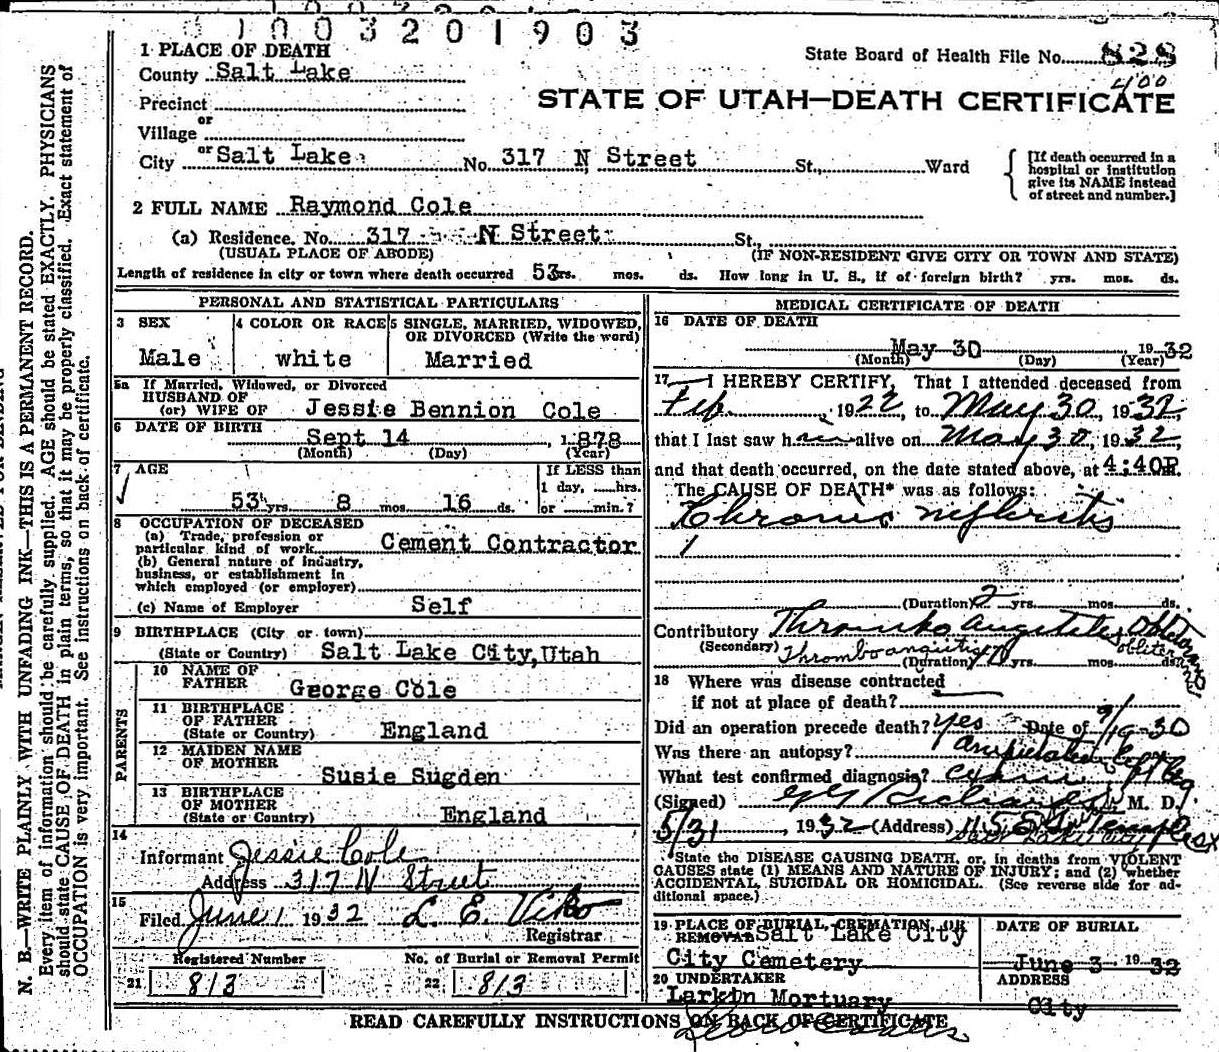 1003201903
1 PLACE OF DEATH
State Board of Health File No. 828
County Salt Lake
400
Precinct
STATE OF UTAH—DEATH CERTIFICATE
or
Village
or
City Salt Lake No. 317 N Street St., Ward
[If death occurred in a hospital or institution give its NAME instead of street and number.]
2 FULL NAME Raymond Cole
(a) Residence. No. 317 N Street St.,
(USUAL PLACE OF ABODE) (IF NON-RESIDENT GIVE CITY OR TOWN AND STATE)
Length of residence in city or town where death occurred 53 yrs. mos. ds. How long in U. S., if of foreign birth? yrs. mos. ds.
PERSONAL AND STATISTICAL PARTICULARS
3 SEX
Male
4 COLOR OR RACE
white
5 SINGLE, MARRIED, WIDOWED, OR DIVORCED (Write the word)
Married
5a If Married, Widowed, or Divorced
HUSBAND OF
(or) WIFE OF Jessie Bennion Cole
6 DATE OF BIRTH
Sept 14, 1878
(Month) (Day) (Year)
7 AGE
53 yrs. 8 mos. 16 ds.
If LESS than
1 day, ......hrs.
or ......min.?
8 OCCUPATION OF DECEASED
(a) Trade, profession or
particular kind of work Cement Contractor
(b) General nature of industry,
business, or establishment in
which employed (or employer)
(c) Name of Employer Self
9 BIRTHPLACE (City or town)
(State or Country) Salt Lake City, Utah
PARENTS
10 NAME OF
FATHER George Cole
11 BIRTHPLACE
OF FATHER
(State or Country) England
12 MAIDEN NAME
OF MOTHER
Susie Sugden
13 BIRTHPLACE
OF MOTHER
(State or Country) England
14
Informant Jessie Cole
Address 317 N Street
15
Filed June 1 1932 L. E. Viko
Registrar
Registered Number
21 813
No. of Burial or Removal Permit
22 813
MEDICAL CERTIFICATE OF DEATH
16 DATE OF DEATH
May 30 1932
(Month) (Day) (Year)
17 I HEREBY CERTIFY, That I attended deceased from
Feb. 1922, to May 30, 1932,
that I last saw him alive on May 30, 1932,
and that death occurred, on the date stated above, at 4:40P.
The CAUSE OF DEATH* was as follows:
Chronic nephritis
1
(Duration) 2 yrs. mos. ds.
Contributory Thrombo Angiitis Obliterans
(Secondary) Thromboangiitis obliterans
(Duration) 10 yrs. mos. ds.
18 Where was disease contracted
if not at place of death?
Did an operation precede death? yes Date of 9/19-30
Was there an autopsy? amputated left leg
What test confirmed diagnosis?
(Signed) G G Richards M. D.
5/31, 1932 (Address)
*State the DISEASE CAUSING DEATH, or, in deaths from VIOLENT
CAUSES state (1) MEANS AND NATURE OF INJURY; and (2) whether
ACCIDENTAL, SUICIDAL OR HOMICIDAL. (See reverse side for ad-
ditional space.)
19 PLACE OF BURIAL, CREMATION, OR
REMOVAL Salt Lake City
City Cemetery
DATE OF BURIAL
June 3 1932
20 UNDERTAKER
Larkin Mortuary
ADDRESS
City
READ CAREFULLY INSTRUCTIONS ON BACK OF CERTIFICATE
N. B.—WRITE PLAINLY WITH UNFADING INK—THIS IS A PERMANENT RECORD.
Every item of information should be carefully supplied. AGE should be stated EXACTLY. PHYSICIANS
should state CAUSE OF DEATH in plain terms, so that it may be properly classified. Exact statement of
OCCUPATION is very important. See instructions on back of certificate.